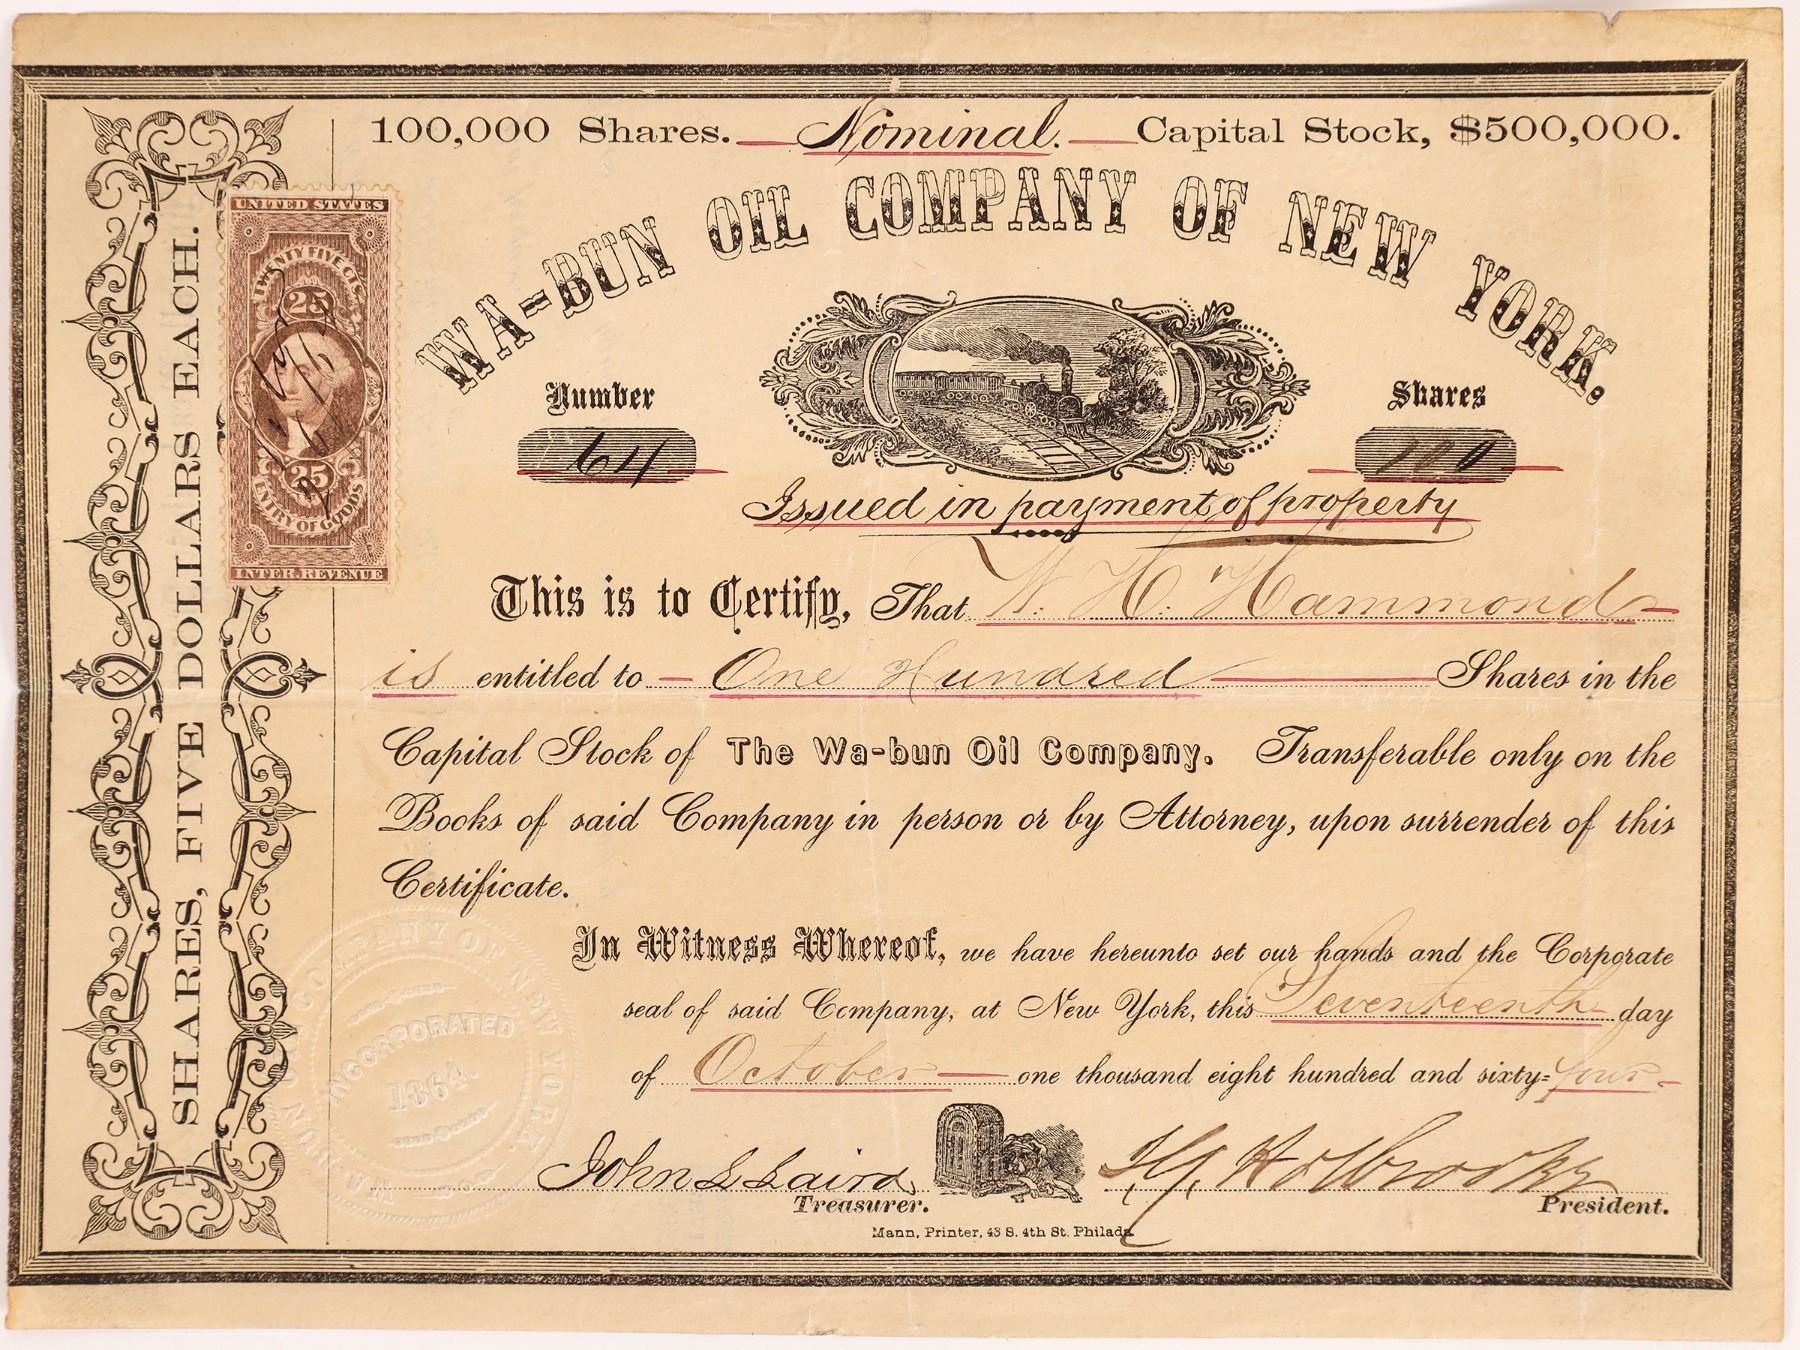 100,000 Shares. Nominal. Capital Stock, $500,000.
WA-BUN OIL COMPANY OF NEW YORK.
SHARES, FIVE DOLLARS EACH.
UNITED STATES
TWENTY FIVE CTS.
25
25
ENTRY OF GOODS
INTER. REVENUE
Number
64
Shares
100
Issued in payment of property
This is to Certify, That W. H. Hammond
is entitled to One Hundred Shares in the
Capital Stock of The Wa-bun Oil Company. Transferable only on the
Books of said Company in person or by Attorney, upon surrender of this
Certificate.
In Witness Whereof, we have hereunto set our hands and the Corporate
seal of said Company, at New York, this Seventeenth day
of October one thousand eight hundred and sixty-four
WA-BUN OIL COMPANY OF NEW YORK
INCORPORATED
1864.
John L Laird
Treasurer.
Holbrook
President.
Mann, Printer, 43 S. 4th St. Philada